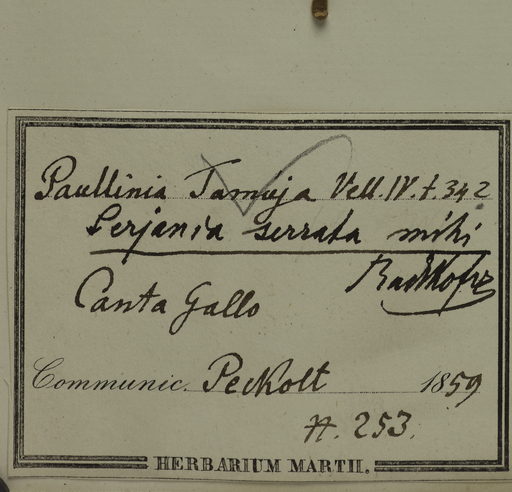 Paullinia Tamuja Vell. IV. t. 342
Serjania serrata mihi
Radlkofer
Canta Gallo
Communic. Peckolt 1859
N. 253.
HERBARIUM MARTII.